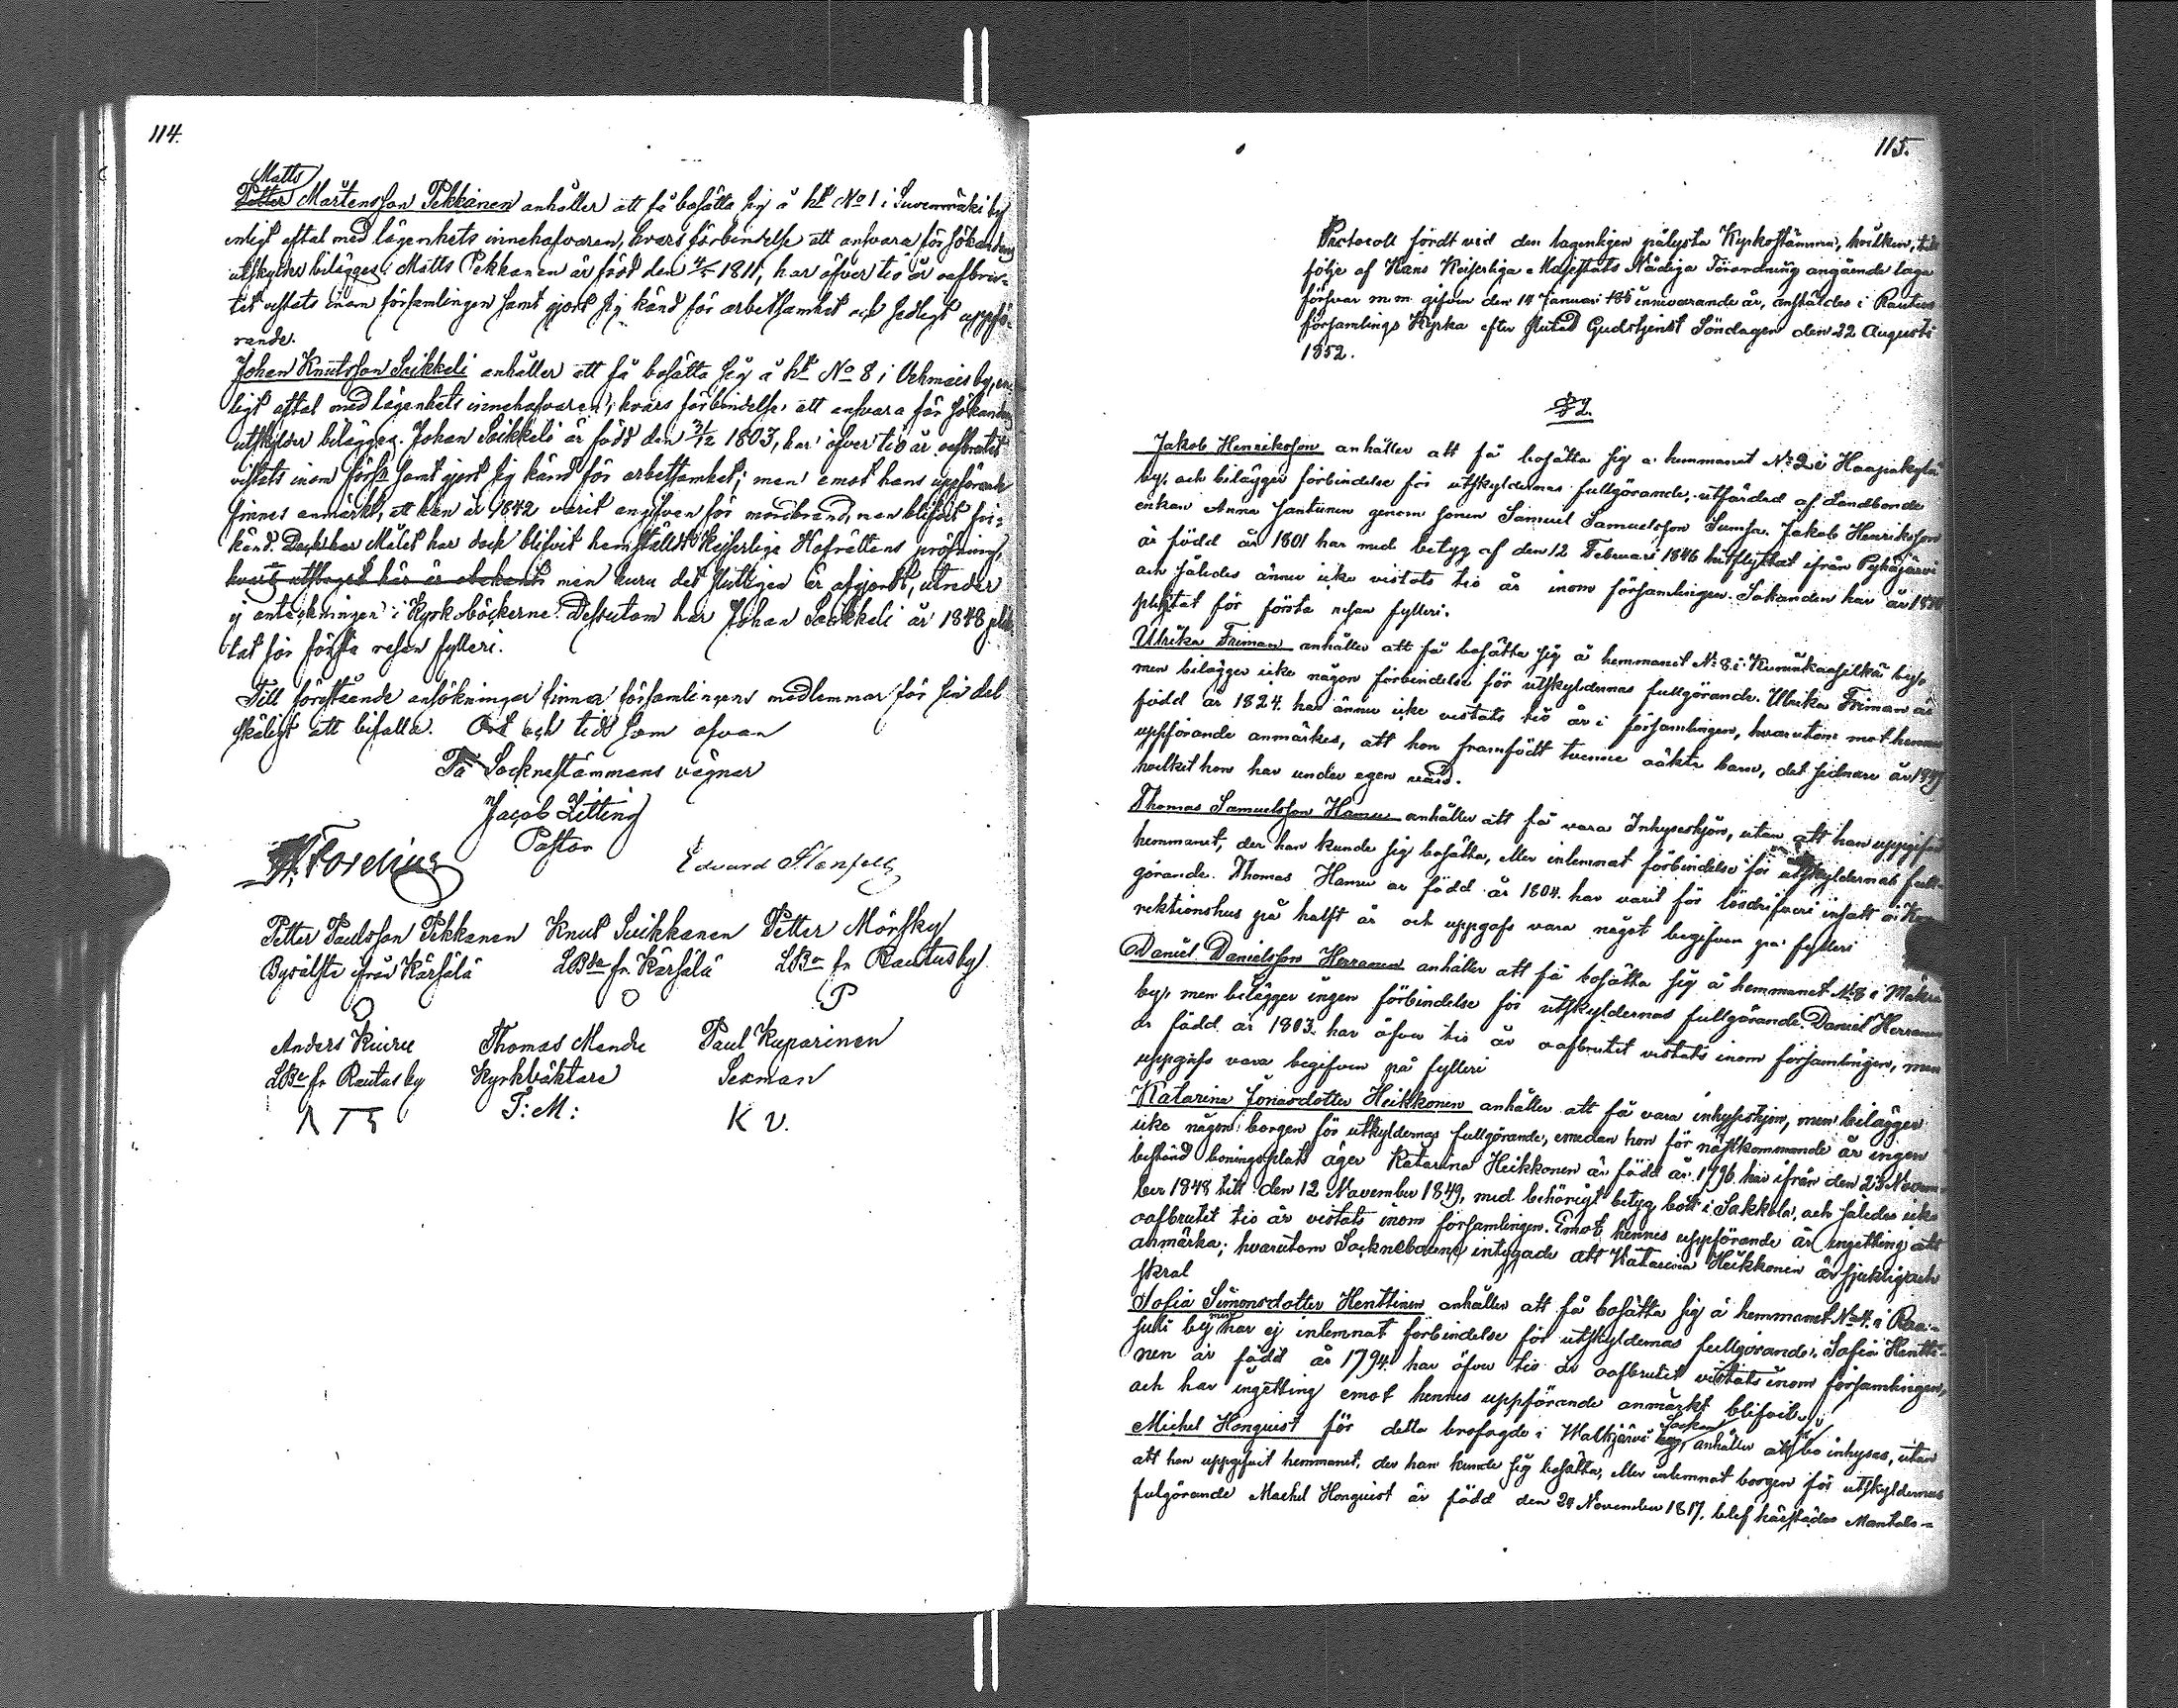 114.
Matts
Petter Mårtensson Pekkanen anhåller att få bosätta sig å ht No 1 i Suvenmäki by
enligt aftal med lägenhets innehafvaren, hvars förbindelse att ansvara för sökandens
utskylder bilägges. Matts Pekkanen är född den 4/5 1811, har öfver tio år oafbru-
tet vistats inom församlingen samt gjort sig känd för arbetsamhet och sedligt uppfö-
rande.
Johan Knutsson Seikkeli anhåller att få bosätta sig å ht No 8 i Vehmais by, en-
ligt aftal med lägenhets innehafvaren, hvars förbindelse att ansvara för sökandens
utskylder bilägges. Johan Seikkeli är född den 31/12 1803, har öfver tio år oafbrutet
vistats inom förs: samt gjort sig känd för arbetsamhet; men emot hans uppförande
finnes anmärkt, att han år 1842 varit angifven för mordbrand, men blifvit fri-
känd. Detta Målet har dock blifvit hemställdt kejserliga Hofrättens pröfning,
hvars utslaget här är obekant men huru det slutligen är afgjordt, utreder
ej anteckningen i Kyrkoböckerne. Dessutom har Johan Seikkeli år 1848 plik-
tat för första resan fylleri.
Till förestående ansökningar finner församlingens medlemmar för sin del
skäligt att bifalla. Ort och tid som ofvan
På Socknestämmans vägnar
Jacob Zitting
Pastor
Forelius
Edvard Stenfelt
Petter Paulsson Pekkanen Knut Suikkanen Petter Mörsky
Byeälste ifrån Kärsälä LBde fr. Kärsälä LBe fr Rautusby
P
Anders Kiuru Thomas Mendre Paul Kuparinen
LBe fr Rautusby Kyrkväktare Sexman
T: M: K V.
115.
Protocoll fördt vid den lagenligen pålysta Kyrkostämman, hvilken, till
följe af Hans Keiserliga Majestäts Nådiga Förordning angående laga
försvar m.m. gifven den 14 Januari 185 innevarande år, anställdes i Rautus
församlings Kyrka efter slutad Gudstjenst Söndagen den 22 Augusti
1852.
§ 2.
Jakob Henriksson anhåller att få bosätta sig å hemmanet No 2 i Haapakylä
by, och bilägger förbindelse för utskyldernas fullgörande, utfärdad af Landbonde
enkan Anna Jantunen genom sonen Samuel Samuelsson Sumsa. Jakob Henriksson
är född år 1801 har med betyg af den 12 Februari 1846 hitflyttat ifrån Pyhäjärvi
och således ännu icke vistats tio år inom församlingen. Sökanden har år
pliktat för första resan fylleri.
Ulrika Friman anhåller att få bosätta sig å hemmanet No 8 i by,
men bilägger icke någon förbindelse för utskyldernas fullgörande. Ulrika Friman är
född år 1824. har ännu icke vistats tio år i församlingen, hvarutom mot hennes
uppförande anmärkes, att hon framfödt tvenne oäkta barn, det sednare år 1849
hvilket hon har under egen vård.
Thomas Samuelsson Hamu anhåller att få vara Inhyseshjon, utan att han uppgifvit
hemmanet, der han kunde sig bosätta, eller inlemnat förbindelse för utskyldernas full-
görande. Thomas Hamu är född år 1804. har varit för lösdrifveri insatt å Kor-
rektionshus på halft år och uppgafs vara något begifven på fylleri
Daniel Danielsson Herranen anhåller att få bosätta sig å hemmanet No 8 i Mäkrä
by, men bilägger ingen förbindelse för utskyldernas fullgörande. Daniel Herranen
är född år 1803. har öfver tio år oafbrutet vistats inom församlingen, men
uppgafs vara begifven på fylleri
Katarina Jönasdotter Heikkonen anhåller att få vara inhyseshjon, men bilägger
icke någon borgen för utskyldernas fullgörande, emedan hon för nästkommande år ingen
bestämd boningsplats äger. Katarina Heikkonen är född år 1796. har ifrån den 23 Novem-
ber 1848 till den 12 November 1849, med behörigt betyg bott i Sakkola, och således icke
oafbrutet tio år vistats inom församlingen. Emot hennes uppförande är ingetting att
anmärka; hvarutom Sockneboerne intygade att Katarina Heikkonen är sjuklig och
skral
Sofia Simonsdotter Henttinen anhåller att få bosätta sig å hemmanet No 4. i Raa-
suli by men har ej inlemnat förbindelse för utskyldernas fullgörande. Sofia Hentti-
nen är född år 1794. har öfver tio år oafbrutet vistats inom församlingen,
och har ingetting emot hennes uppförande anmärkt blifvit.
Michel Honquist för detta brofogde i Walkjärvi Socken anhåller att få bo inhyses, utan
att han uppgifvit hemmanet, der han kunde sig bosätta, eller inlemnat borgen för utskyldernas
fulgörande Machel Honquist är född den 24 November 1817. blef härstädes Mantals-